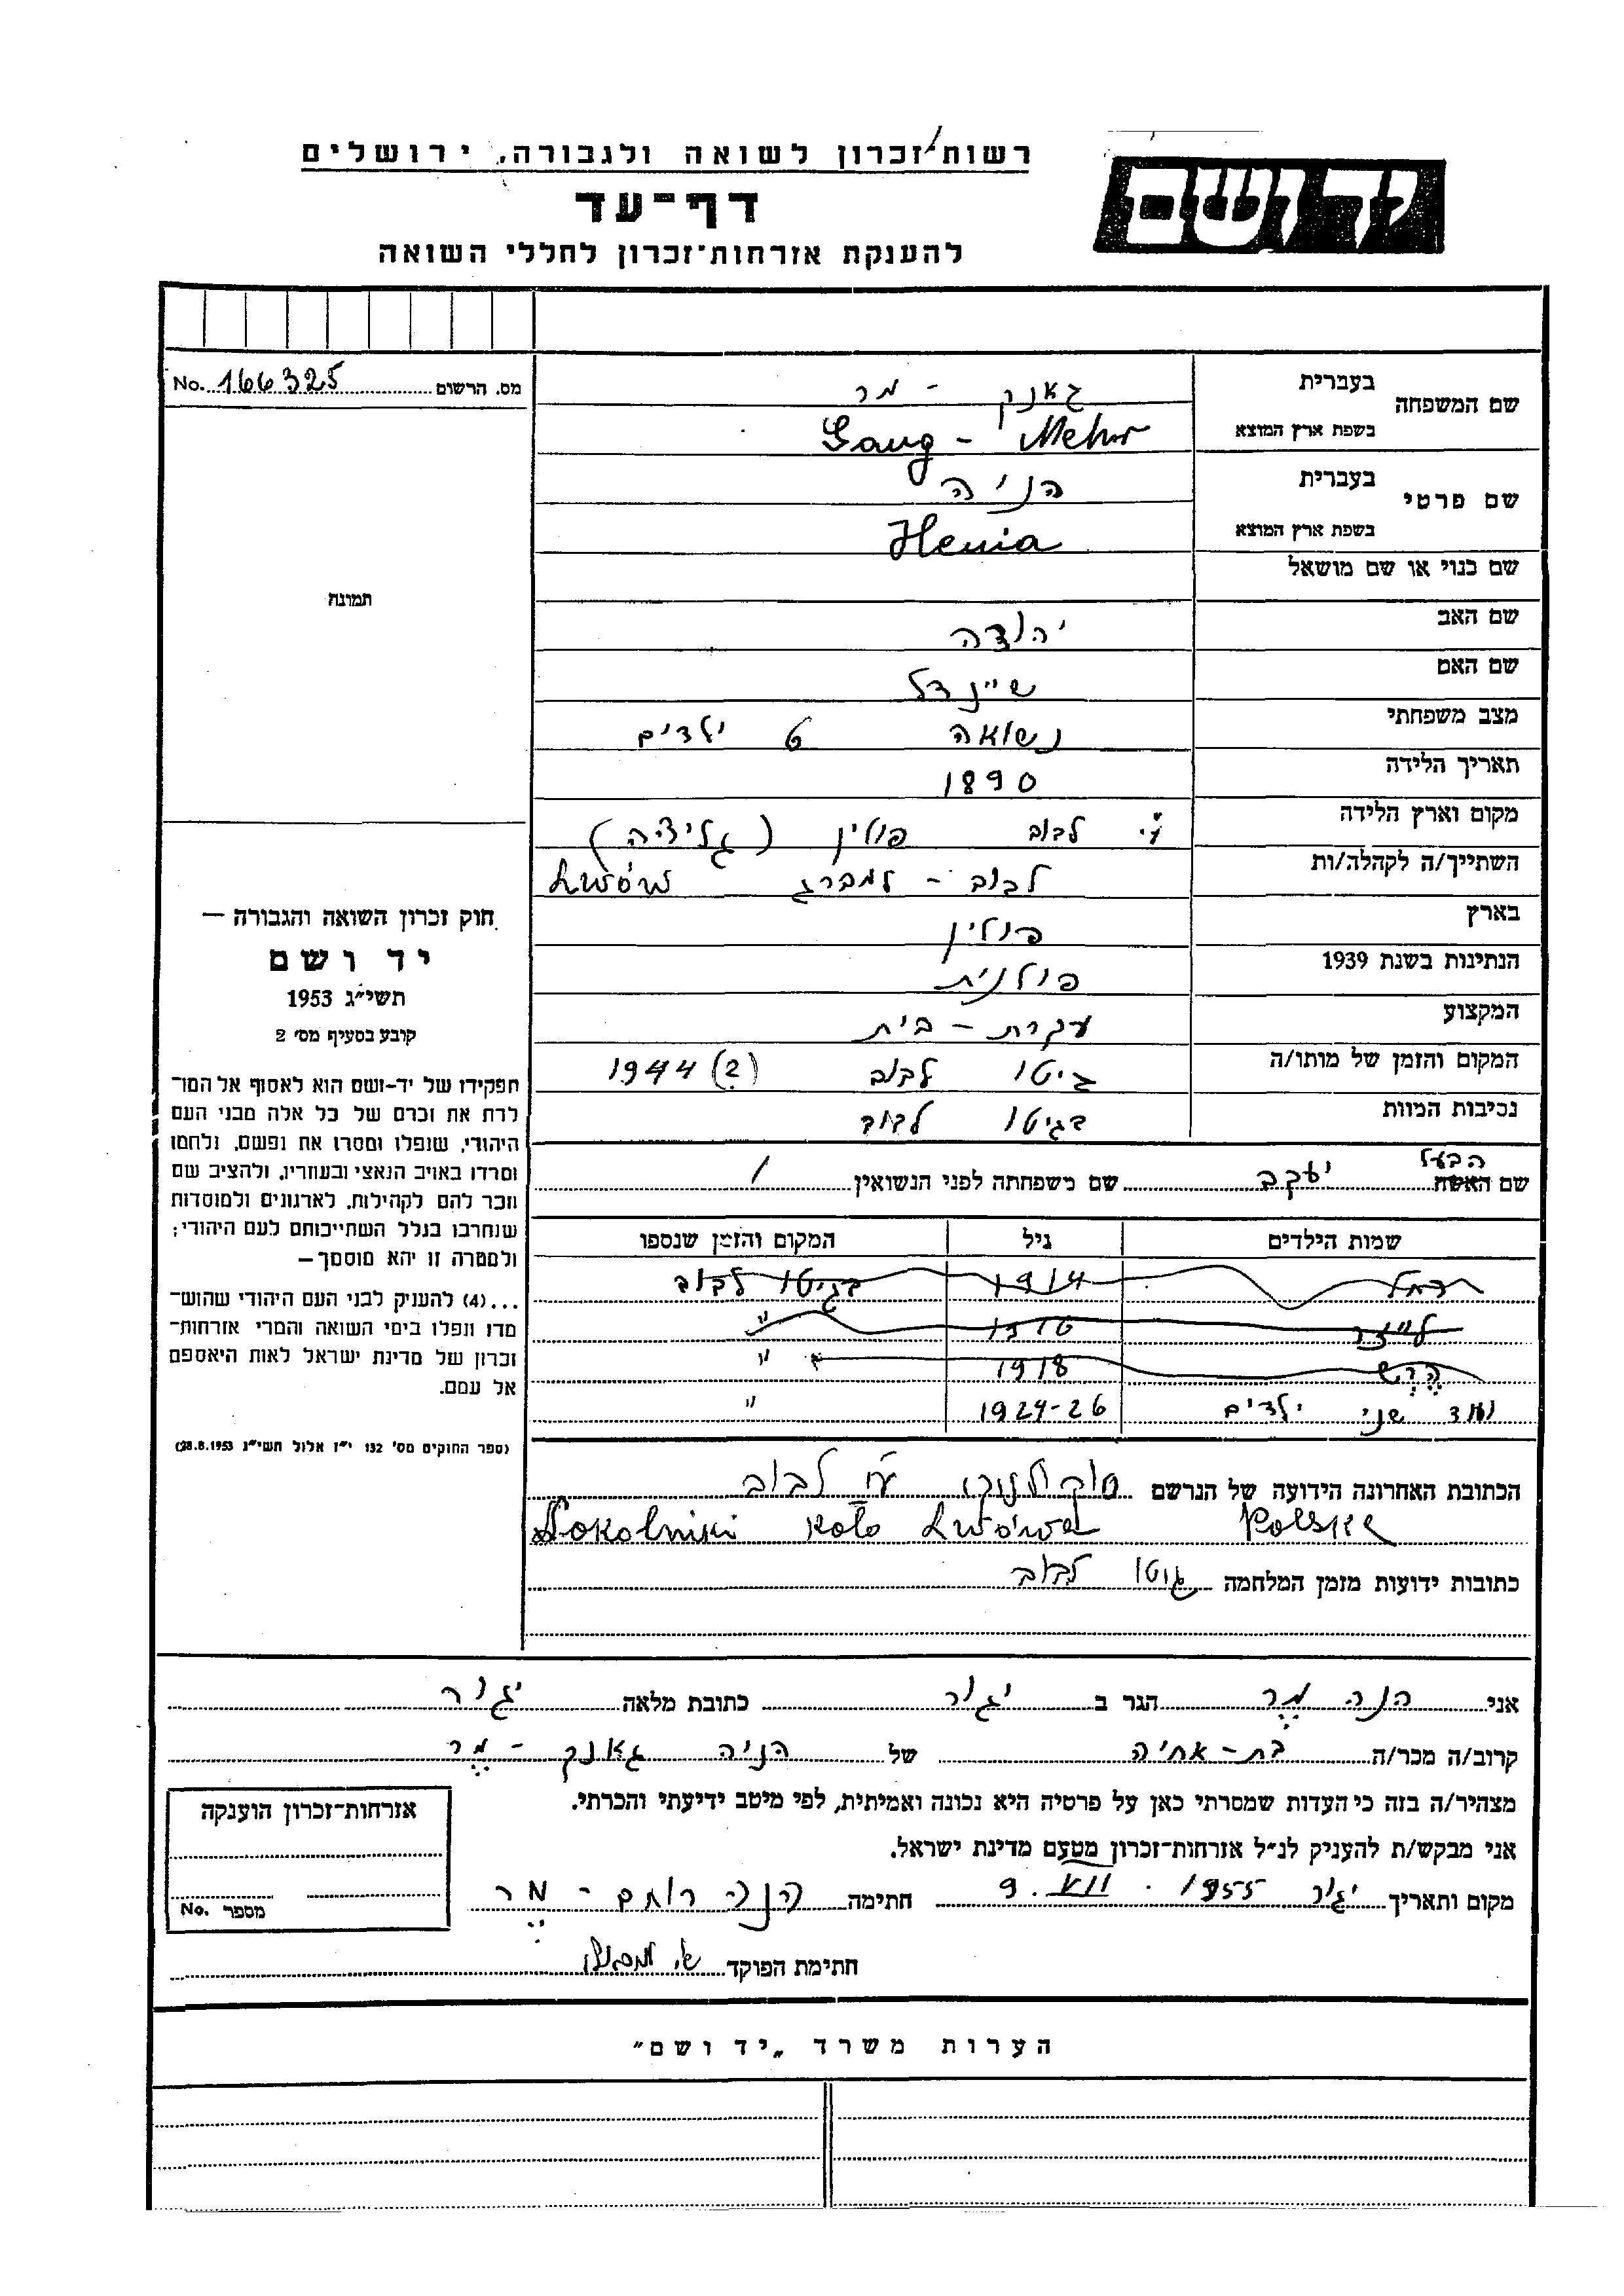 רשות זכרון לשואה ולגבורה, ירושלים
יד ושם
דף-עד
להענקת אזרחות-זכרון לחללי השואה
מס. הרשום No. 166325
שם המשפחה בעברית גאנק - מר
בשפת ארץ המוצא Gang - Mehr
שם פרטי בעברית הניה
בשפת ארץ המוצא Henia
שם כנוי או שם מושאל
שם האב יהודה
שם האם שיינדל
מצב משפחתי נשואה 6 ילדים
תאריך הלידה 1890
מקום וארץ הלידה ע"י לבוב פולין (גליציה)
השתייך/ה לקהלה/ות לבוב - למברג Lwów
בארץ פולין
הנתינות בשנת 1939 פולנית
המקצוע עקרת - בית
המקום והזמן של מותו/ה גיטו לבוב (?) 1944
נסיבות המוות בגיטו לבוב
הבעל
שם האשה יעקב שם משפחתה לפני הנשואין /
שמות הילדים גיל המקום והזמן שנספו
רחל 1914 בגיטו לבוב
לייזר 1916 "
הרש 1918 "
ועוד שני ילדים 1924-26 "
הכתובת האחרונה הידועה של הנרשם סוקולניקי ע"י לבוב
Sokolniki koło Lwówa Polska
כתובות ידועות מזמן המלחמה גיטו לבוב
תמונה
חוק זכרון השואה והגבורה —
יד ושם
תשי"ג 1953
קובע בסעיף מס' 2
תפקידו של יד-ושם הוא לאסוף אל המו־
לדת את זכרם של כל אלה מבני העם
היהודי, שנפלו ומסרו את נפשם, נלחמו
ומרדו באויב הנאצי ובעוזריו, ולהציב שם
וזכר להם לקהילות, לארגונים ולמוסדות
שנחרבו בגלל השתייכותם לעם היהודי;
ולמטרה זו יהא מוסמך—
...(4) להענק לבני העם היהודי שהוש־
מדו ונפלו בימי השואה והמרי אזרחות־
זכרון של מדינת ישראל לאות היאספם
אל עמם.
(ספר החוקים מס' 132 י"ז אלול תשי"ג 28.8.1953)
אני חנה מר הגר ב יגור כתובת מלאה יגור
קרוב/ה מכר/ה בת - אחיה של הניה גאנק - מר
מצהיר/ה בזה כי העדות שמסרתי כאן על פרטיה היא נכונה ואמיתית, לפי מיטב ידיעתי והכרתי.
אני מבקש/ת להעניק לנ"ל אזרחות־זכרון מטעם מדינת ישראל.
מקום ותאריך יגור 9. VII. 1955 חתימה חנה רותם - מר
חתימת הפוקד
אזרחות־זכרון הוענקה
מספר No.
הערות משרד „יד ושם"